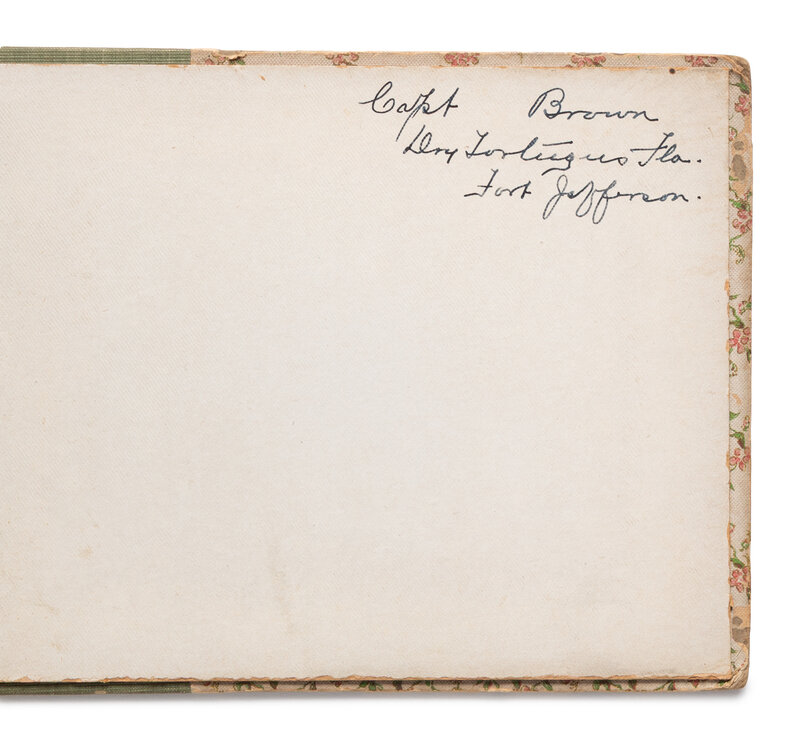 Capt Brown
Dry Tortugus Fla.
Fort Jefferson.